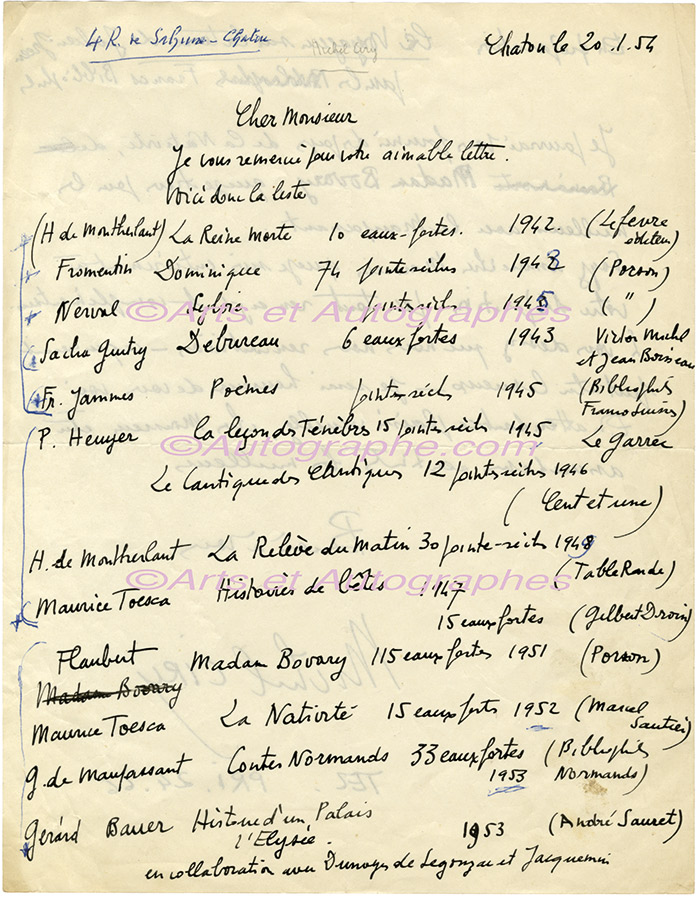 4 R. de                 - Chatou
Michel Ciry
Chatou le 20.1.54
Cher Monsieur
Je vous remercie pour votre aimable lettre.
Voici donc la liste
(H de Montherlant) La Reine Morte 10 eaux-fortes. 1942. (Lefevre éditeur)
Fromentin Dominique 74 pointe sèches 1942 (Porson)
Nerval Sylvie pointes sèch 1945 ( " )
©Arts et Autographes
Sacha Guitry Debureau 6 eaux fortes 1943 Victor Michel et Jean Boisseau
Fr. Jammes Poèmes pointes sèch 1945 (Bibliophiles Franco Suisses)
P. Heuyer La leçon des Ténèbres 15 pointes sèch 1945 Le Garrec
©Autographe.com
Le Cantique des Cantiques 12 pointes sèches 1946
(Cent et une)
H. de Montherlant La Relève du Matin 30 pointe-sèch 1948
(Table Ronde)
©Arts et Autographes
Maurice Toesca Histoires de bêtes 1947
15 eaux fortes (Gilbert Droin)
Flaubert Madam Bovary 115 eaux fortes 1951 (Porson)
Madam Bovary
Maurice Toesca La Nativité 15 eaux forts 1952 (Marcel Sautier)
G. de Maupassant Contes Normands 33 eaux fortes (Bibliophiles
1953 Normands)
Gerard Bauer Histoire d'un Palais
l'Elysée. 1953 (André Sauret)
en collaboration avec Dunoyer de Segonzac et Jacquemin